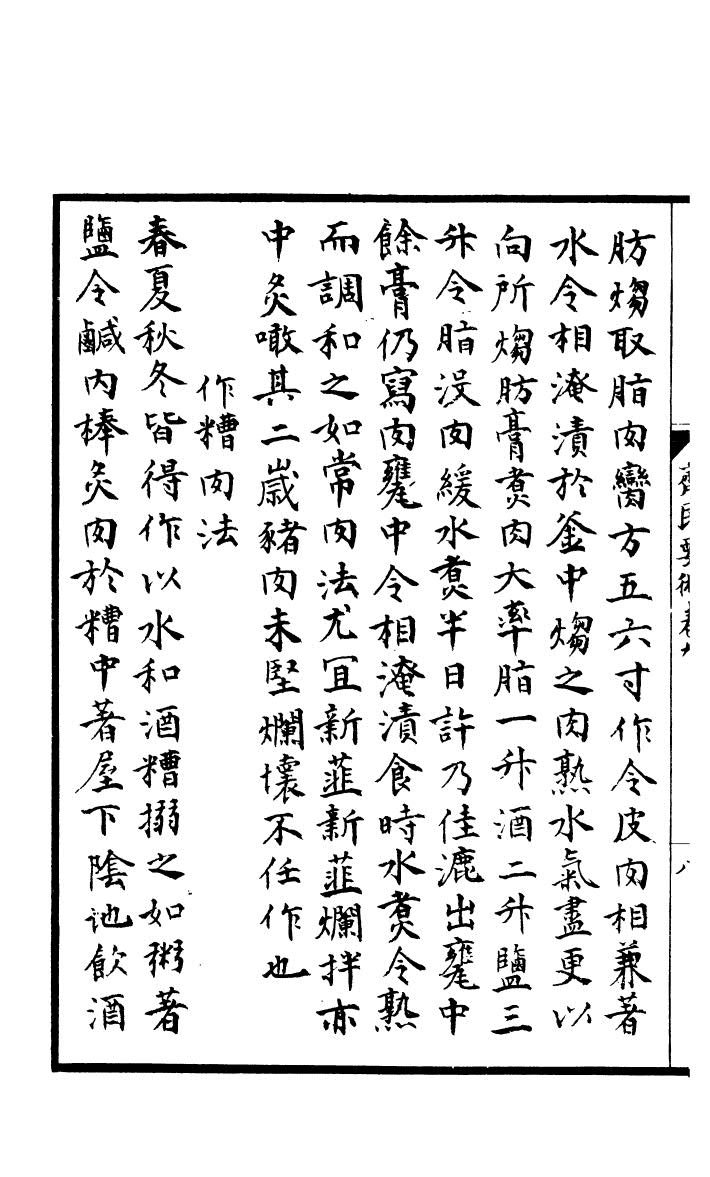 肪煼取脂肉臠方五六寸作令皮肉相兼著
水令相淹漬於釜中煼之肉熟水氣盡更以
向所煼肪膏煮肉大率脂一升酒二升鹽三
升令脂没肉緩水煮半日許乃佳漉出甕中
餘膏仍寫肉甕中令相淹漬食時水煮令熟
而調和之如常肉法尤宜新韮新韮爛拌亦
中炙噉其二歲豬肉未堅爛壞不任作也
作糟肉法
春夏秋冬皆得作以水和酒糟搦之如粥著
鹽令鹹内棒炙肉於糟中著屋下陰地飲酒